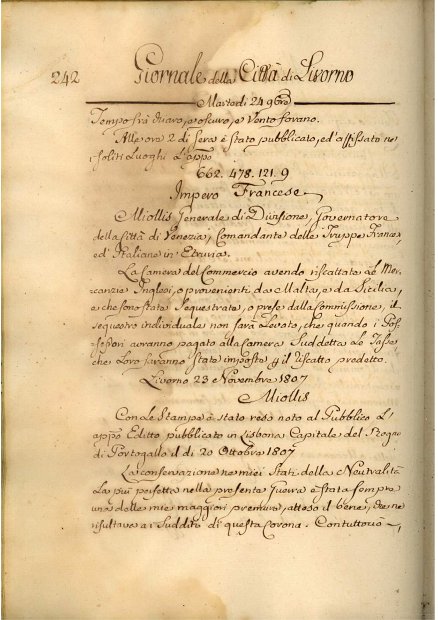 242 Giornale della Città di Livorno
Martedì 24 9bre
Tempo frà chiaro, e oscuro, e Vento forano.
Alle ore 2 di Sera è stato pubblicato, ed affissato ne
i soliti Luoghi L'appo
662. 478. 121. 9
Impero Francese
Miollis Generale di Divisione, Governatore
della Città di Venezia, Comandante delle Truppe Francesi,
ed Italiane in Etruria.
La Camera del Commercio avendo riscattate Le Mer-
canzie Inglesi, o provenienti da Malta, e da Sicilia,
e che sono state Sequestrate, o prese dalla Commissione, il
sequestro individuale non sarà Levato, che quando i Pos-
sessori avranno pagato alla Camera Suddetta Le Tasse
che Loro saranno State imposte p il riscatto predetto.
Livorno 23 Novembre 1807
Miollis
Con Le Stampe è stato reso noto al Pubblico L'
appo Editto pubblicato in Lisbona Capitale del Regno
di Portogallo il dì 20 Ottobre 1807
La conservazione ne miei Stati della Neutralità
La più perfetta nella presente Guerra è stata sempre
una delle mie maggiori premure, atteso il bene, che ne
risultava ai Sudditi di questa Corona. Contuttociò,